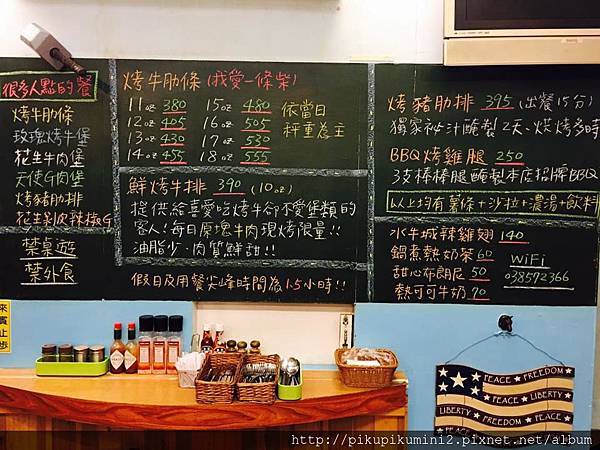 很多人點的餐
烤牛肋條
玫瑰烤牛堡
花生牛肉堡
天使G肉堡
烤豬肋排
花生菜皮辣椒G
禁桌遊
禁外食
烤牛肋條 (我愛一條柴)
11oz 380 15oz 480
12oz 405 16oz 505
13oz 430 17oz 530
14oz 455 18oz 555
依當日
秤重為主
鮮烤牛排 390 (10oz)
提供給喜愛吃烤牛卻不愛堡類的
客人!每日原塊牛肉現烤限量!!
油脂少、肉質鮮甜!!
假日及用餐尖峰時間為1.5小時!!
烤豬肋排 395 (出餐15分)
獨家祕汁醃製2天、烘烤多時
BBQ烤雞腿 250
3支棒棒腿醃製本店招牌BBQ
以上均有薯條+沙拉+濃湯+飲料
水牛城辣雞翅 140
鍋煮熱奶茶 60
甜心布朗尼 50
熱可可牛奶 70
WiFi
038572366
來賓止步
PEACE FREEDOM
LIBERTY PEACE
PEACE FREEDOM
LIBERTY PEACE
http://pikupikumini2.pixnet.net/album